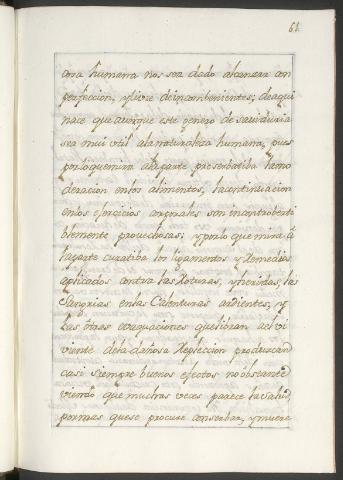 61
cosa humana nos sea dado alcanzar con
perfeccion, y livre de incombenientes; de aqui
nace que aunque este genero de sauiduria
sea mui vtil ala naturaleza humana, pues
por loque mira ala parte preserbatiba la mo
deracion en los alimentos, la continuacion
en los ejercicios corporales son incontroberti
blemente prouechosas; y por lo que mira â
la parte curatiba los ligamentos y Remedios
aplicados contra las Roturas, y heridas, las
Sangrias en las Calenturas ardientes, y
las ôtras evaquaciones que libran al vi
viente dela dañosa Repleccion produscan
casi siempre buenos efectos no obstante
viendo que muchas veces parece la Salud,
por mas que se procure conserbar, y muere